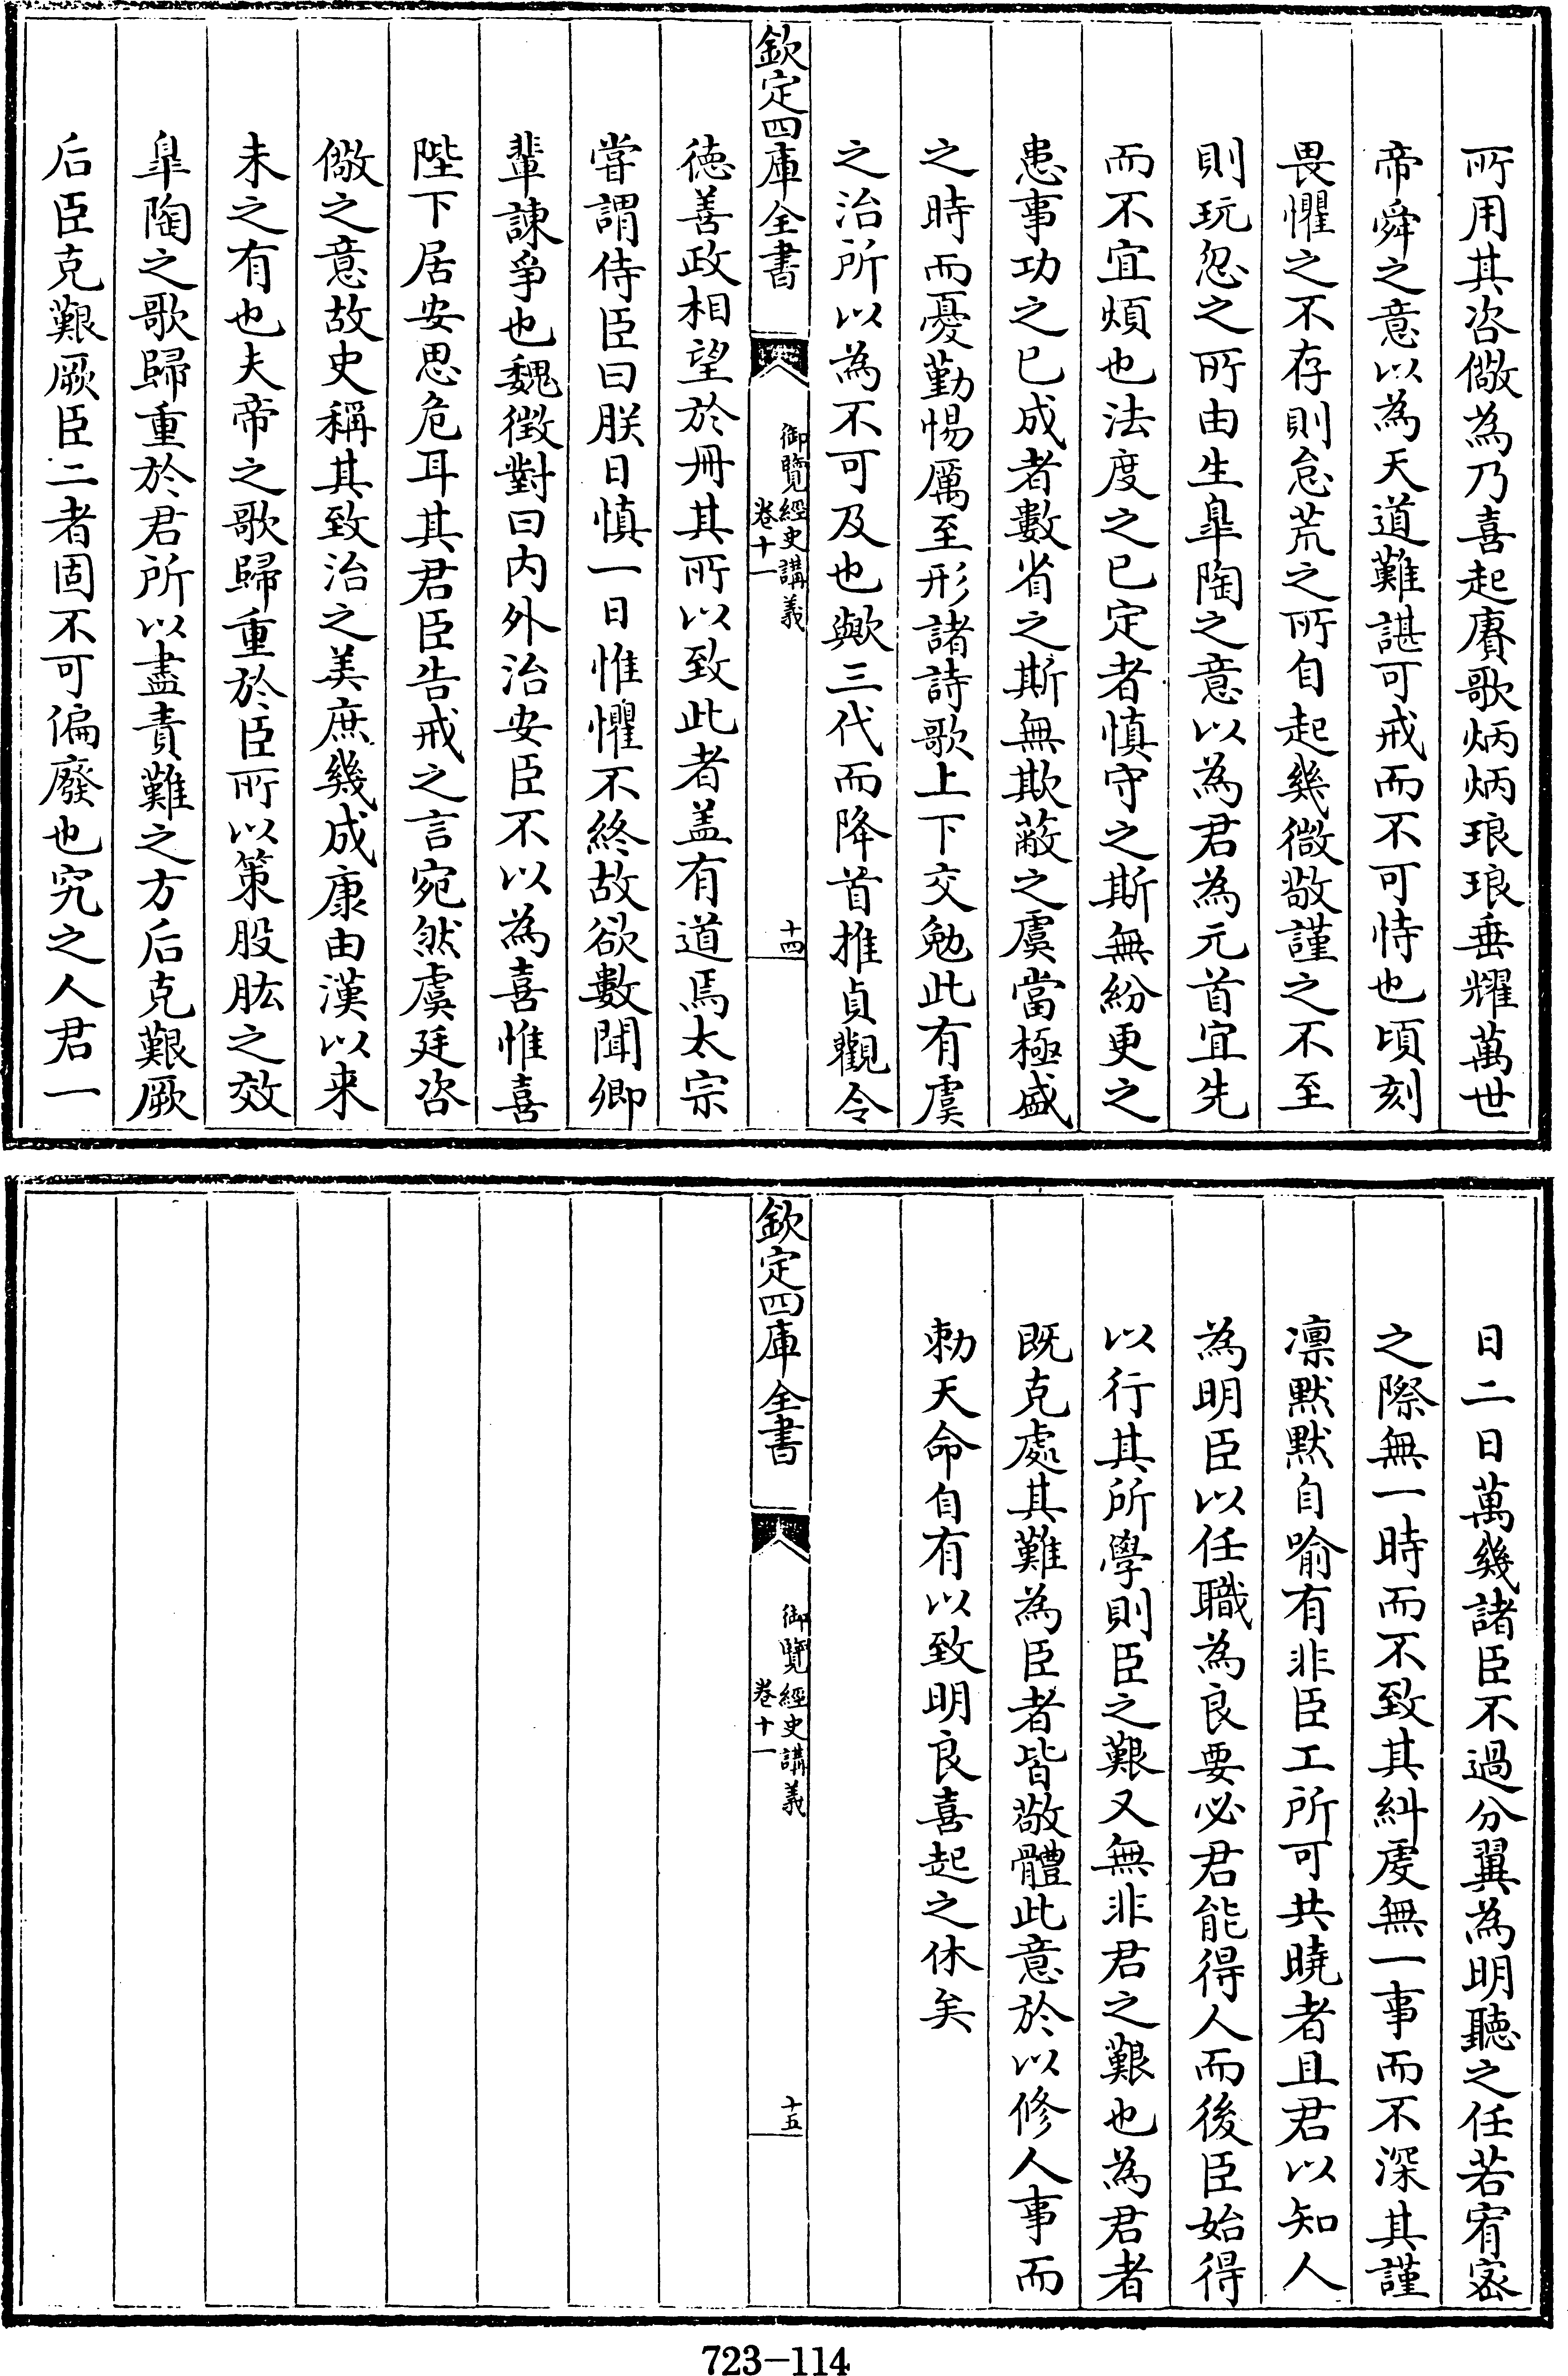 所用其咨儆為乃喜起賡歌炳炳琅琅垂耀萬世
帝舜之意以為天道難諶可戒而不可恃也頃刻
畏懼之不存則怠荒之所自起幾微敬謹之不至
則玩忽之所由生臯陶之意以為君為元首宜先
而不宜煩也法度之已定者慎守之斯無紛更之
患事功之已成者數省之斯無欺蔽之虞當極盛
之時而憂勤惕厲至形諸詩歌上下交勉此有虞
之治所以為不可及也歟三代而降首推貞觀令
欽定四庫全書
御覽經史講義
卷十一
十四
德善政相望於冊其所以致此者盖有道焉太宗
嘗謂侍臣曰朕日慎一日惟懼不終故欲數聞卿
輩諫爭也魏徴對曰内外治安臣不以為喜惟喜
陛下居安思危耳其君臣告戒之言宛然虞廷咨
儆之意故史稱其致治之美庶幾成康由漢以来
未之有也夫帝之歌歸重於臣所以策股肱之效
臯陶之歌歸重於君所以盡責難之方后克艱厥
后臣克艱厥臣二者固不可偏廢也究之人君一
日二日萬幾諸臣不過分翼為明聽之任若宥密
之際無一時而不致其糾虔無一事而不深其謹
凛默默自喻有非臣工所可共曉者且君以知人
為明臣以任職為良要必君能得人而後臣始得
以行其所學則臣之艱又無非君之艱也為君者
既克處其難為臣者皆敬體此意於以修人事而
勅天命自有以致明良喜起之休矣
欽定四庫全書
御覽經史講義
卷十一
十五
723-114